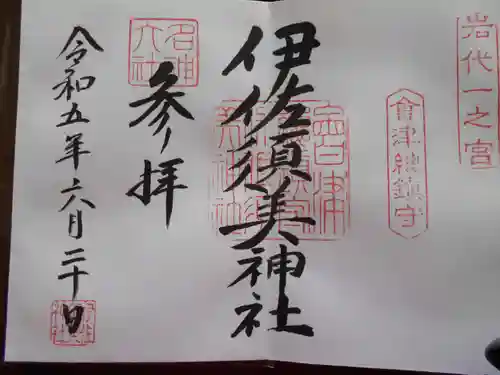 岩代一之宮
會津総鎮守
伊佐須美神社
名神大社
参拝
令和五年六月二十日